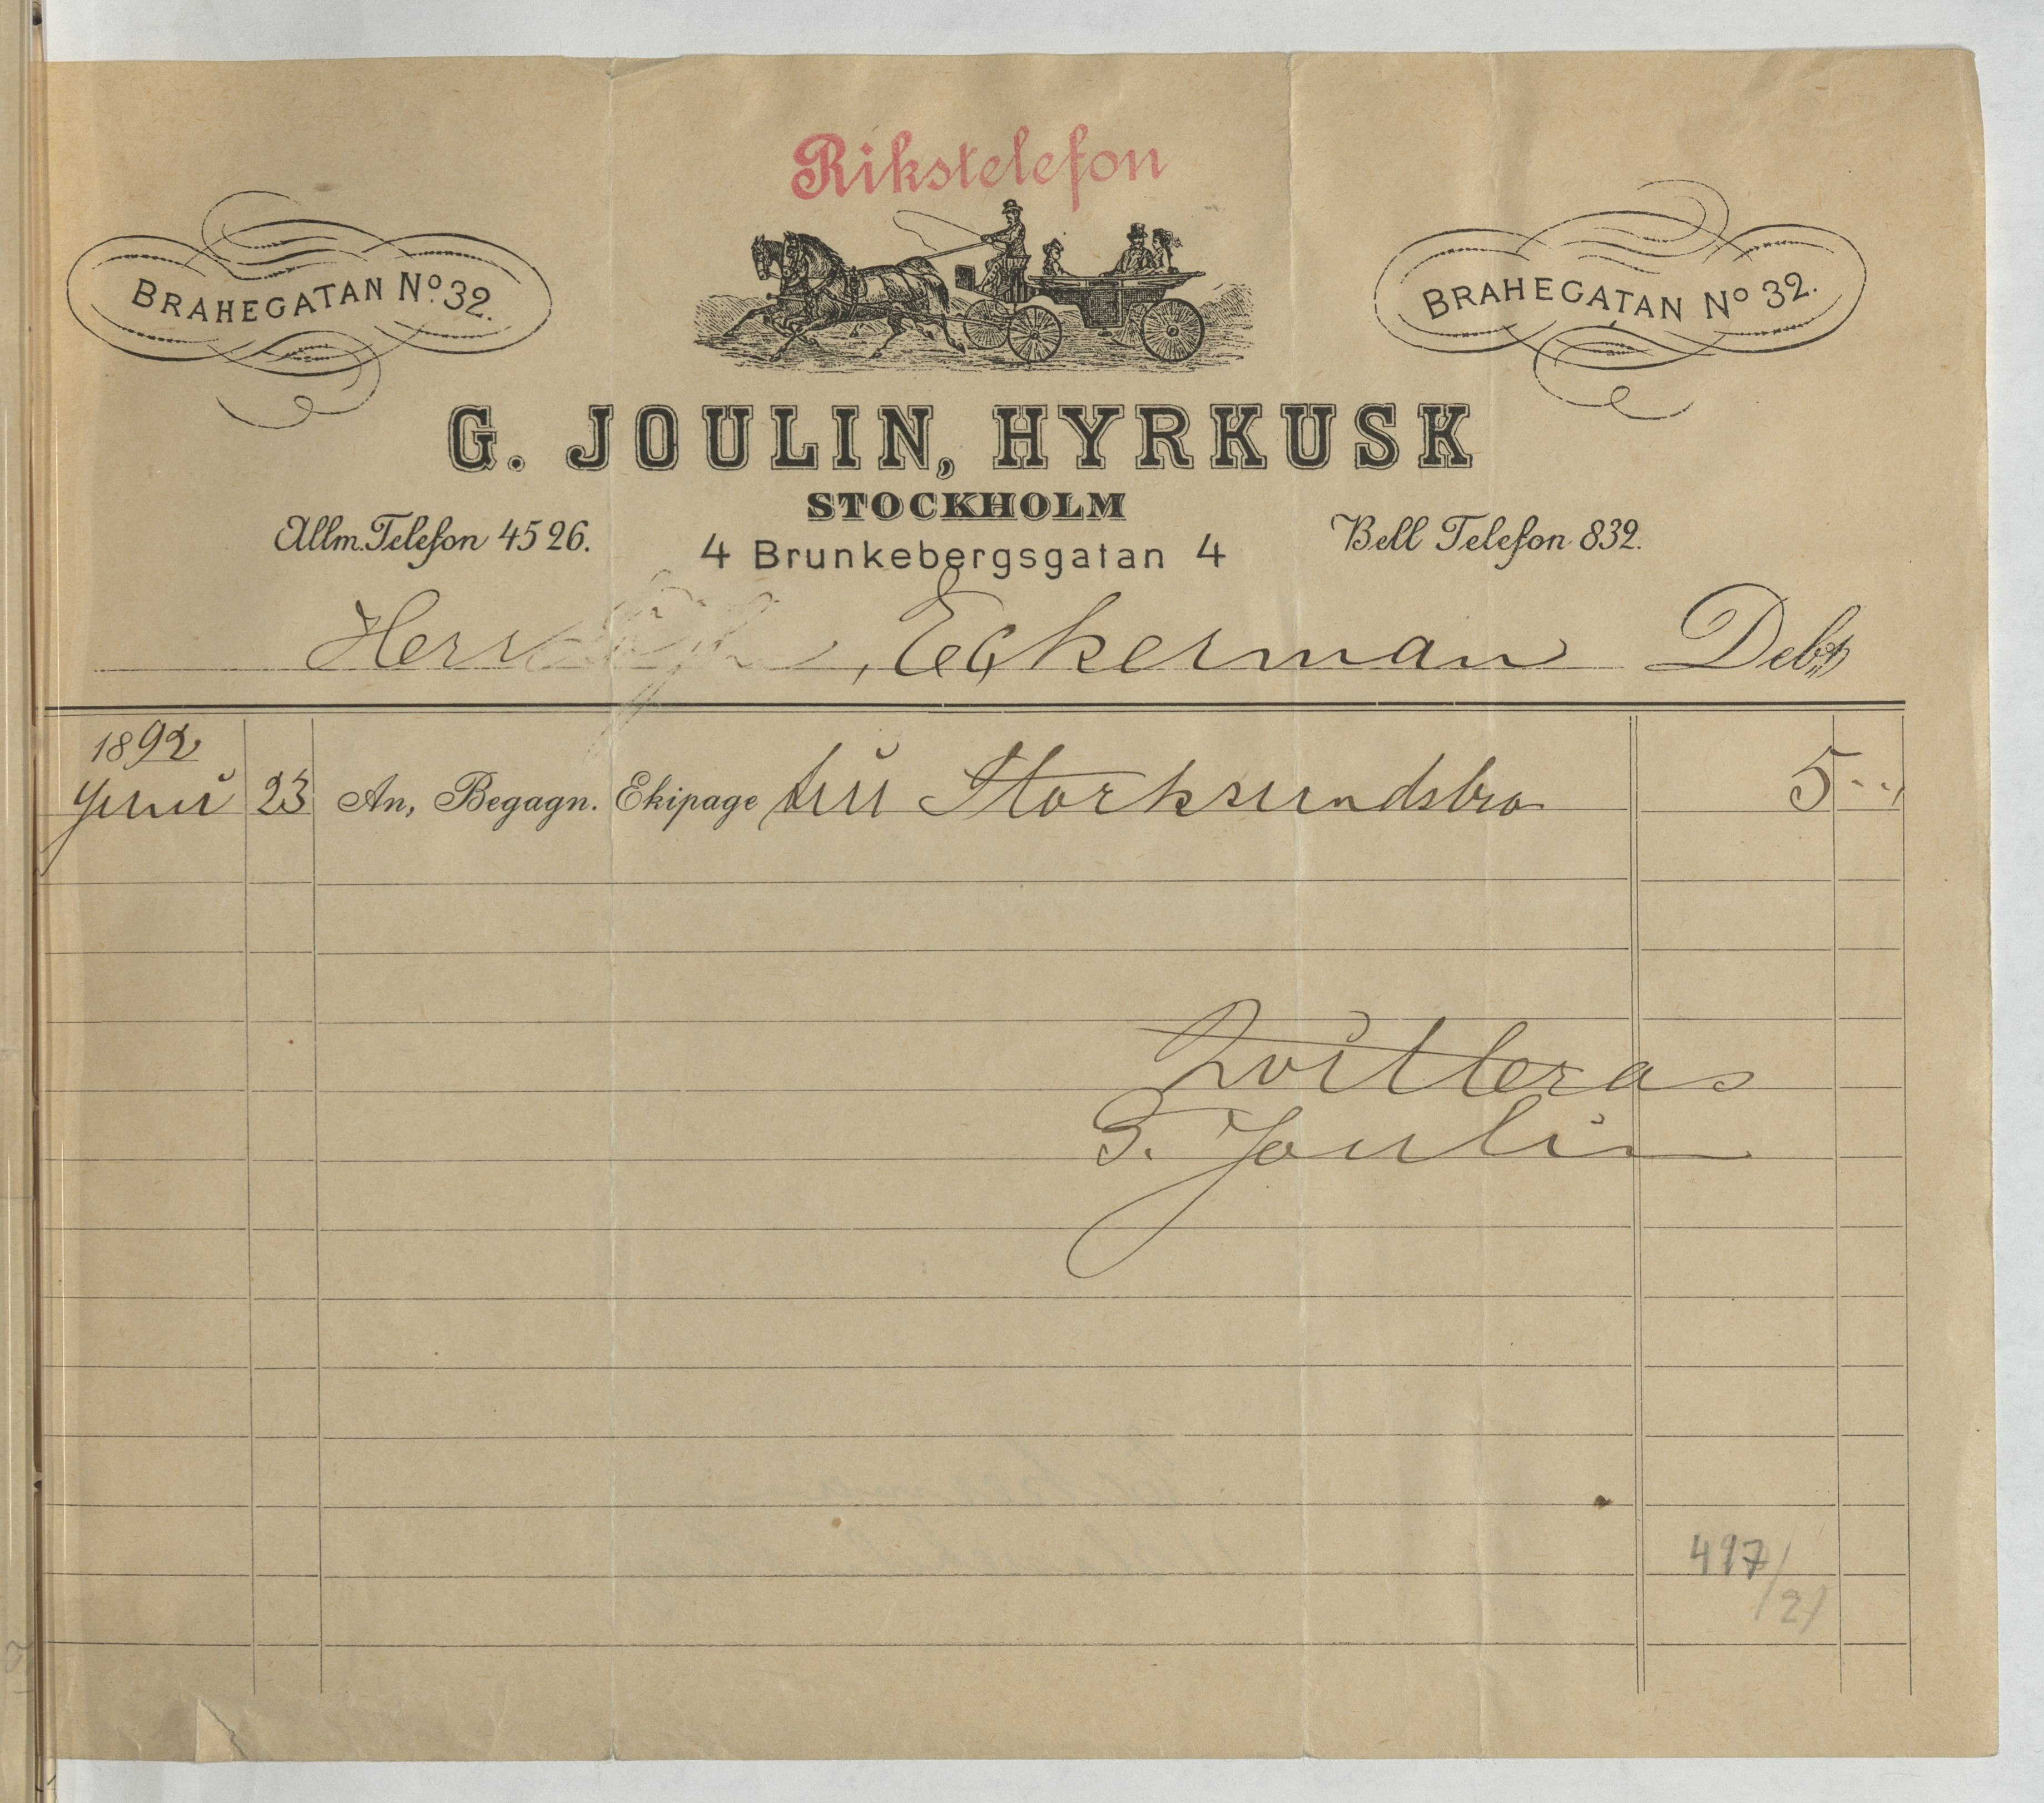 Rikstelefon
BRAHEGATAN No 32.
BRAHEGATAN No 32.
G. JOULIN, HYRKUSK
STOCKHOLM
Allm. Telefon 4526.
4 Brunkebergsgatan 4
Bell Telefon 832.
Herr Eckerman Debet
1892
Juni 23 An, Begagn. Ekipage till Storksundsbro 5 --
Qvitteras
G. Joulin
497/21